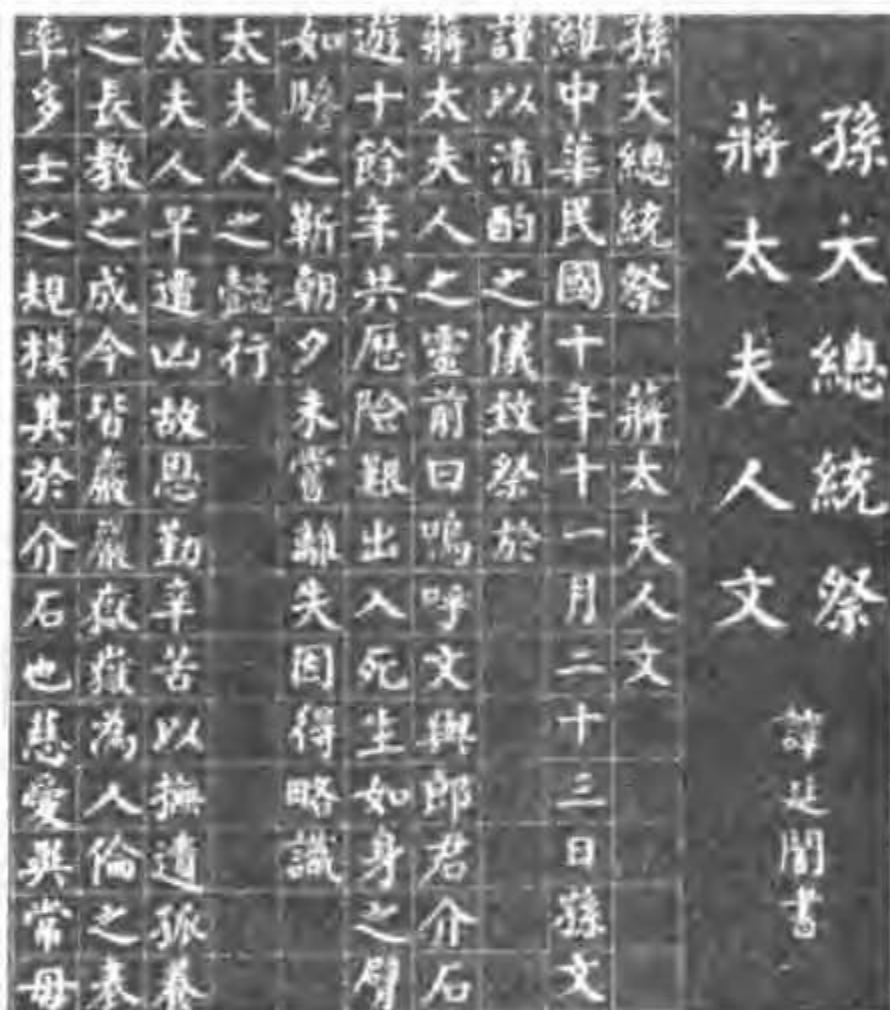 孫大總統祭
蔣太夫人文
譚延闓書
孫大總統祭 蔣太夫人文
維中華民國十年十一月二十三日孫文
謹以清酌之儀致祭於
蔣太夫人之靈前曰嗚呼文與郎君介石
遊十餘年共歷險艱出入死生如身之臂
如驂之靳朝夕未嘗離失因得略識
太夫人之懿行
太夫人早遭凶故恩勤辛苦以撫遺孤養
之長教之成今皆巖巖嶽嶽為人倫之表
率多士之規模其於介石也慈愛異常母